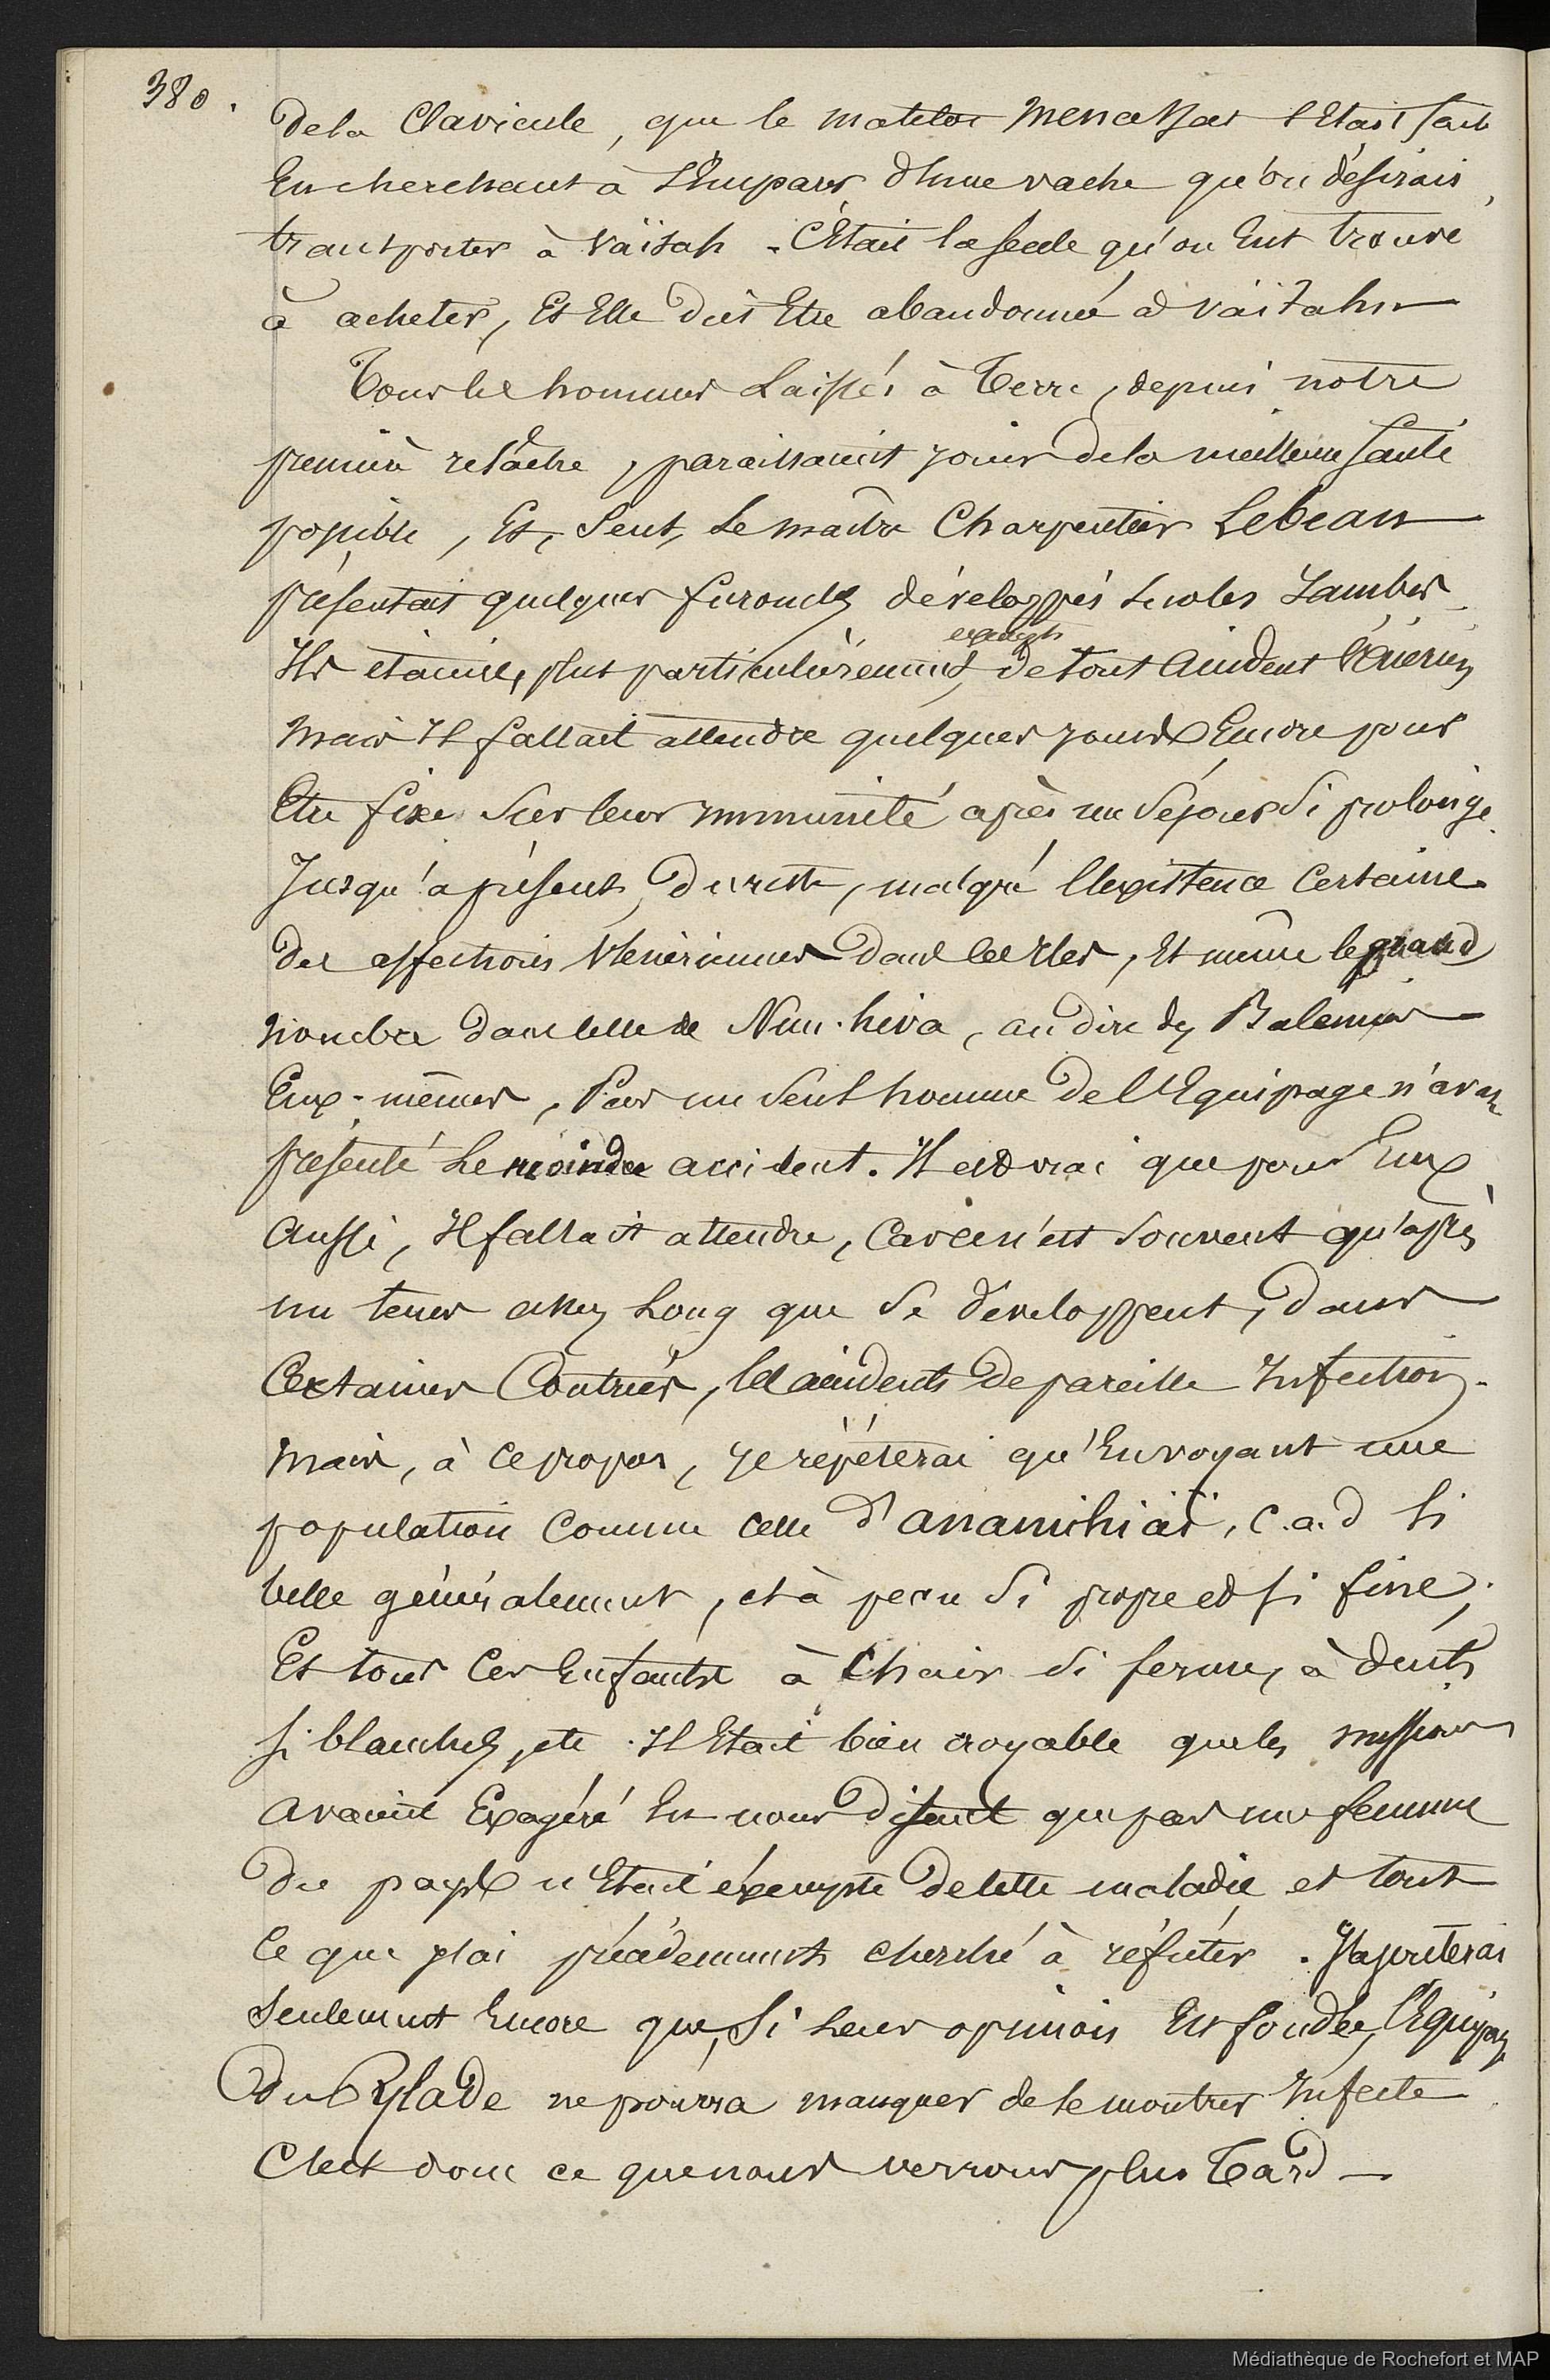 380.
de la Clavicule, que le matelot s'Etait fait
En cherchant à s'Emparer d'Une vache qu'on désirait
transporter à Vaïtah. C'Etait la seule qu'on Eut trouvé
à acheter, Et Elle dût Etre abandonnée à Vaïtahu
Tous les hommes Laissés à Terre, depuis notre
première relâche, paraissaient jouir de la meilleure santé
possible, Et, Seul, Le maître Charpentier Lebeau
présentait quelques furoncles développés sur les Jambes.
exempts
Ils étaient, plus particulièrement, de tout accident Vénérien
mais Il fallait attendre quelques jours Encore pour
Etre fixé Sur leur immunité après un Séjour Si prolongé.
Jusqu'à présent, du reste, malgré l'Existence Certaine
des affections Vénériennes dans les Iles, Et même le grand
nombre dans celle de Nuu-hiva, au dire des Baleiniers
Eux-mêmes, Pas un Seul homme de l'Equipage n'avait
présenté Le moindre accident. Il est vrai que pour Eux
aussi, Il fallait attendre, Car ce n'est Souvent qu'après
un tems assez Long que Se développent, dans
Certaines Contrées, les accidents de pareille Infection.
Mais, à ce propos, je répéterai qu'En voyant une
population Comme celle d'anamihiaï, C.a.d Si
belle généralement, et à peau Si propre et Si fine,
Et tous Ces Enfants à Chair Si ferme, à dents
Si blanches, etc. Il Etait bien croyable que les missionres
avaient Exagéré En nous disant que pas une femme
du pays n'Etait éxempte de cette maladie et tout
Ce que j'ai précédemment cherché à réfuter. J'ajouterai
Seulement Encore que, Si Leur opinion Est fondée, l'Equipage
du Pylade ne pourra manquer de Se montrer Infecté
C'est donc ce que nous verrons plus Tard —
Médiathèque de Rochefort et MAP